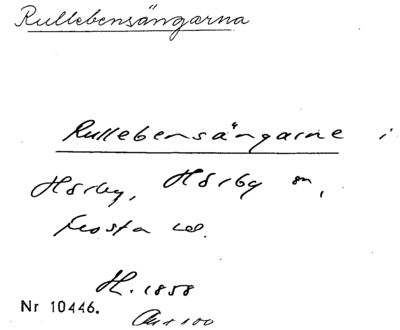 Rullebensängarna
Rullebensängarne i
Hörby, Hörby sn,
Frosta hd.
H. 1858
Nr 10446.